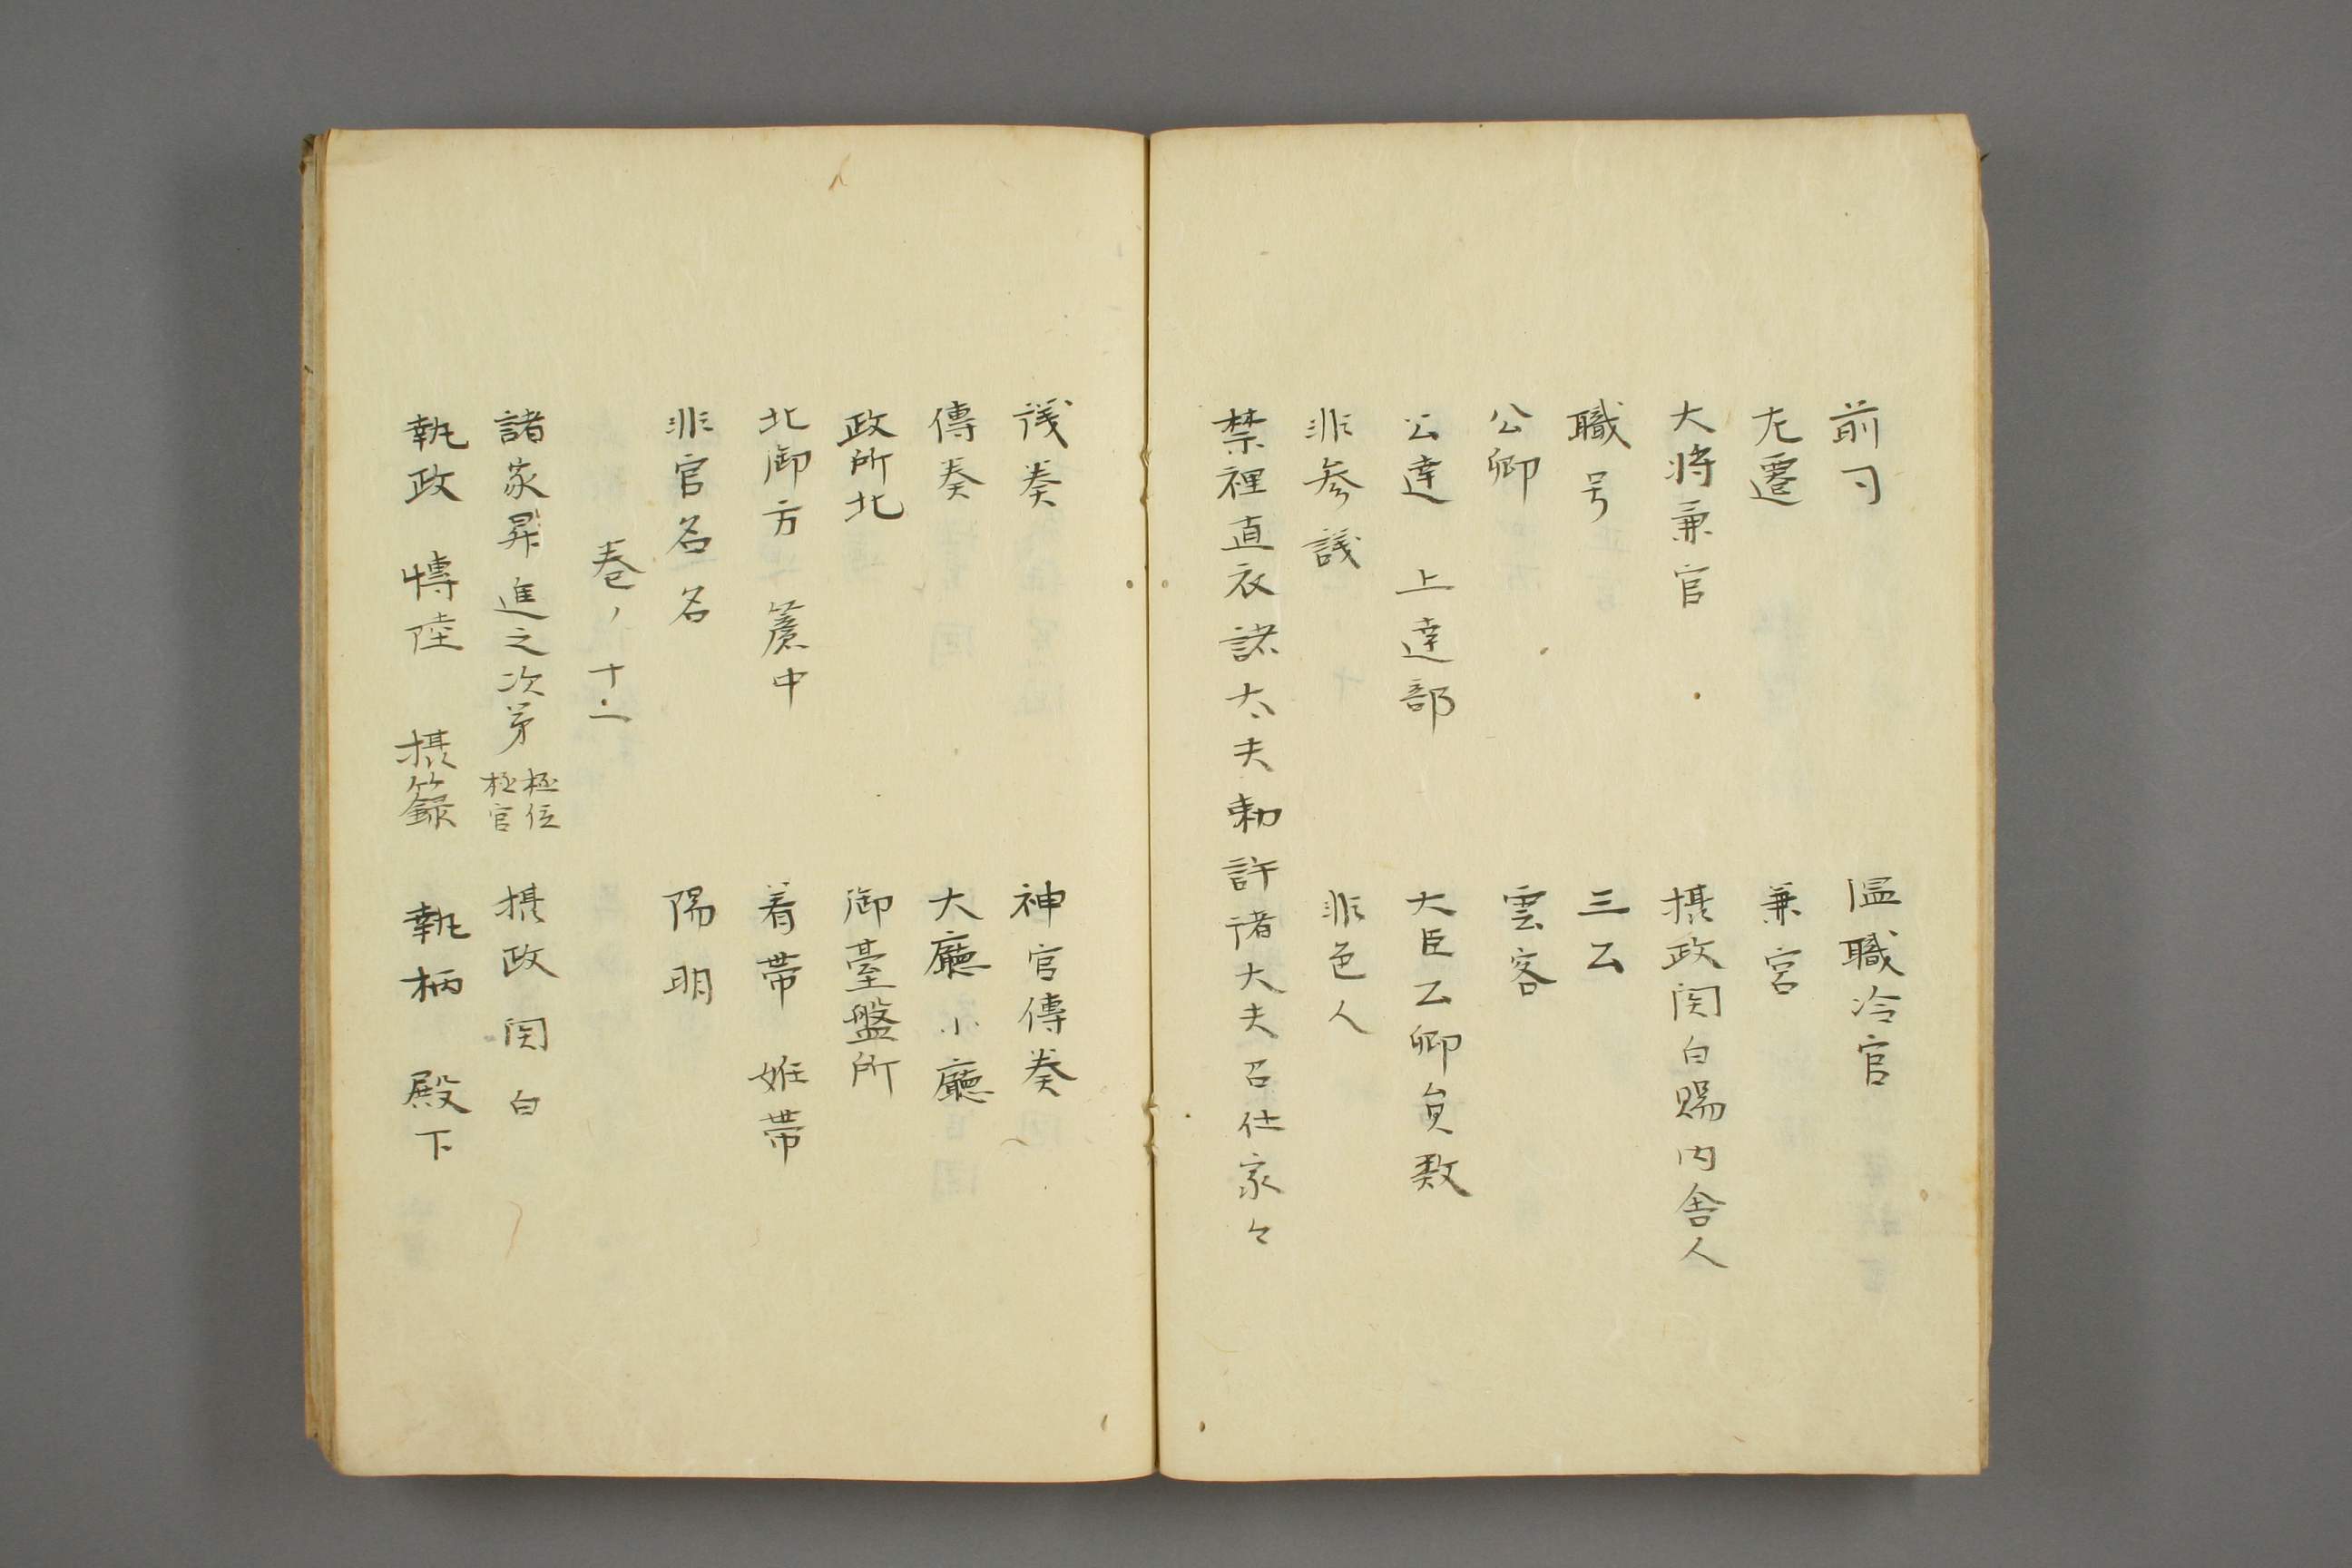 前司
左遷
大将兼官
職号
公卿
公達　上達部
非参議
禁裡直衣諸太夫勅許諸大夫召仕家々
温職冷官
兼宮
摂政関白賜内舎人
三公
雲客
大臣公卿員数
非色人
議奏
傳奏
政所北
北御方　簾中
非官名名
神官傳奏
大廳　小廳
御臺盤所
着帯　妊帯
陽明
巻ノ十二
諸家昇進之次第　極位　極官　摂政　関白
執政　博陸　摂籙　執柄　殿下